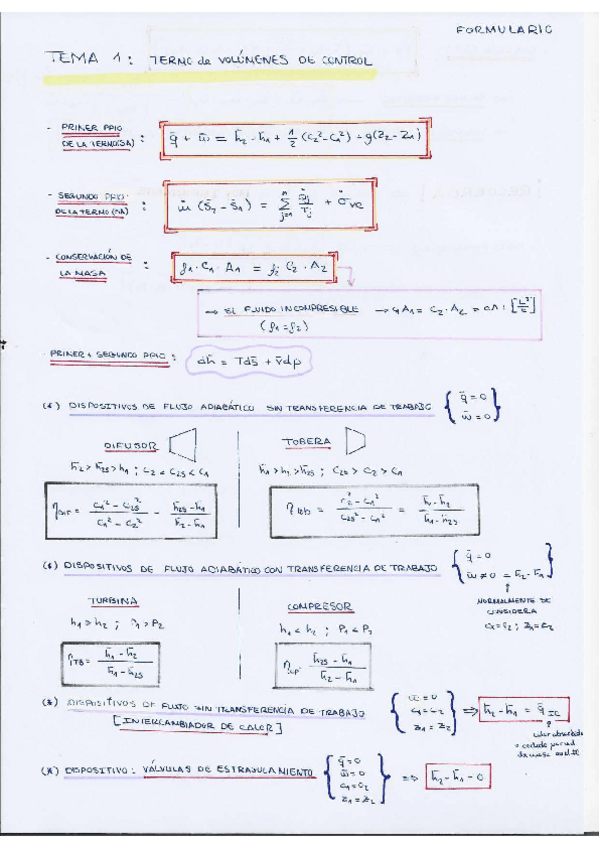 FORMULARIO
TEMA 1: TERMO de VOLÚMENES DE CONTROL
- PRIMER PPIO DE LA TERMO(SA) : q̄ + w̄ = h̄₂ - h̄₁ + 1/2 (C₂² - C₁²) + g(Z₂ - Z₁)
- SEGUNDO PPIO DE LA TERMO (SA) : ṁ (s̄₂ - s̄₁) = Σ j=1 n Q̇j/Tj + σ̇vc
- CONSERVACIÓN DE LA MASA : ρ₁ · C₁ · A₁ = ρ₂ · C₂ · A₂
→ SI FLUIDO INCOMPRESIBLE → C₁A₁ = C₂ · A₂ =
(ρ₁ = ρ₂)
- PRIMER + SEGUNDO PPIO : dh̄ = Tds̄ + v̄dp
(*) DISPOSITIVOS DE FLUJO ADIABÁTICO SIN TRANSFERENCIA DE TRABAJO { q̄ = 0
w̄ = 0 }
DIFUSOR TOBERA
h̄₂ > h̄₂s > h̄₁ ; C₂ < C₂s < C₁ h̄₁ > h̄₂ > h̄₂s ; C₂s > C₂ > C₁
ηDIF = (C₁² - C₂s²)/(C₁² - C₂²) = (h̄₂s - h̄₁)/(h̄₂ - h̄₁) = (C₂² - C₁²)/(C₂s² - C₁²) = (h̄₁ - h̄₂)/(h̄₁ - h̄₂s)
(*) DISPOSITIVOS DE FLUJO ADIABÁTICO CON TRANSFERENCIA DE TRABAJO { q̄ = 0
w̄ ≠ 0 = h̄₂ - h̄₁ }
NORMALMENTE SE
CONSIDERA
C₁ = C₂ ; Z₁ = Z₂
TURBINA COMPRESOR
h₁ > h₂ ; P₁ > P₂ h₁ < h₂ ; P₁ < P₂
ηTB = (h̄₁ - h̄₂)/(h̄₁ - h̄₂s) ηCP = (h̄₂s - h̄₁)/(h̄₂ - h̄₁)
(*) DISPOSITIVOS DE FLUJO SIN TRANSFERENCIA DE TRABAJO
[INTERCAMBIADOR DE CALOR]
{ w̄ = 0
C₁ = C₂
Z₁ = Z₂ } ⇒ h̄₂ - h̄₁ = q̄ IC
calor absorbido
o cedido por ud
de masa
(*) DISPOSITIVO: VÁLVULAS DE ESTRANGULAMIENTO { q̄ = 0
w̄ = 0
C₁ = C₂
Z₁ = Z₂ } ⇒ h̄₂ - h̄₁ = 0